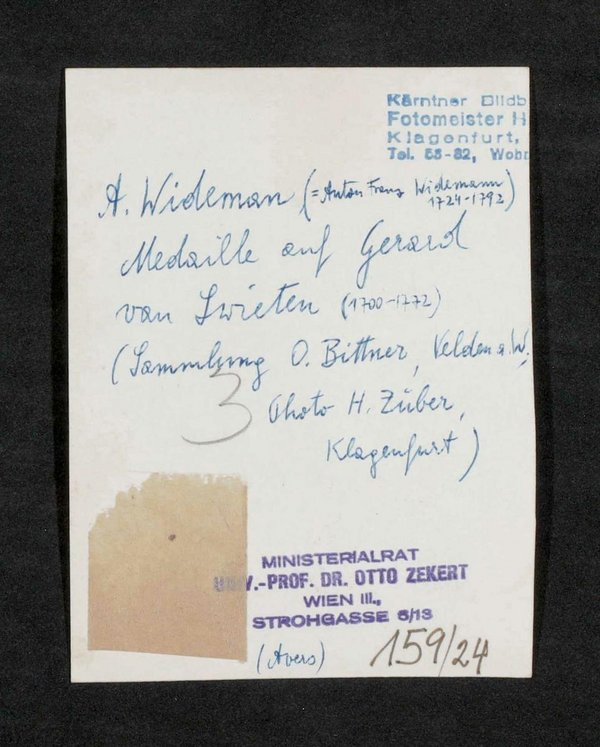 Kärntner Bildb
Fotomeister H
Klagenfurt,
Tel. 58-82, Wohn
A. Wideman (= Anton Franz Widemann
1724-1792)
Medaille auf Gerard
van Swieten (1700-1772)
(Sammlung O. Bittner, Velden a. W.
3
Photo H. Züber,
Klagenfurt)
MINISTERIALRAT
UNIV.-PROF. DR. OTTO ZEKERT
WIEN III.,
STROHGASSE 6/13
(Avers)
159/24